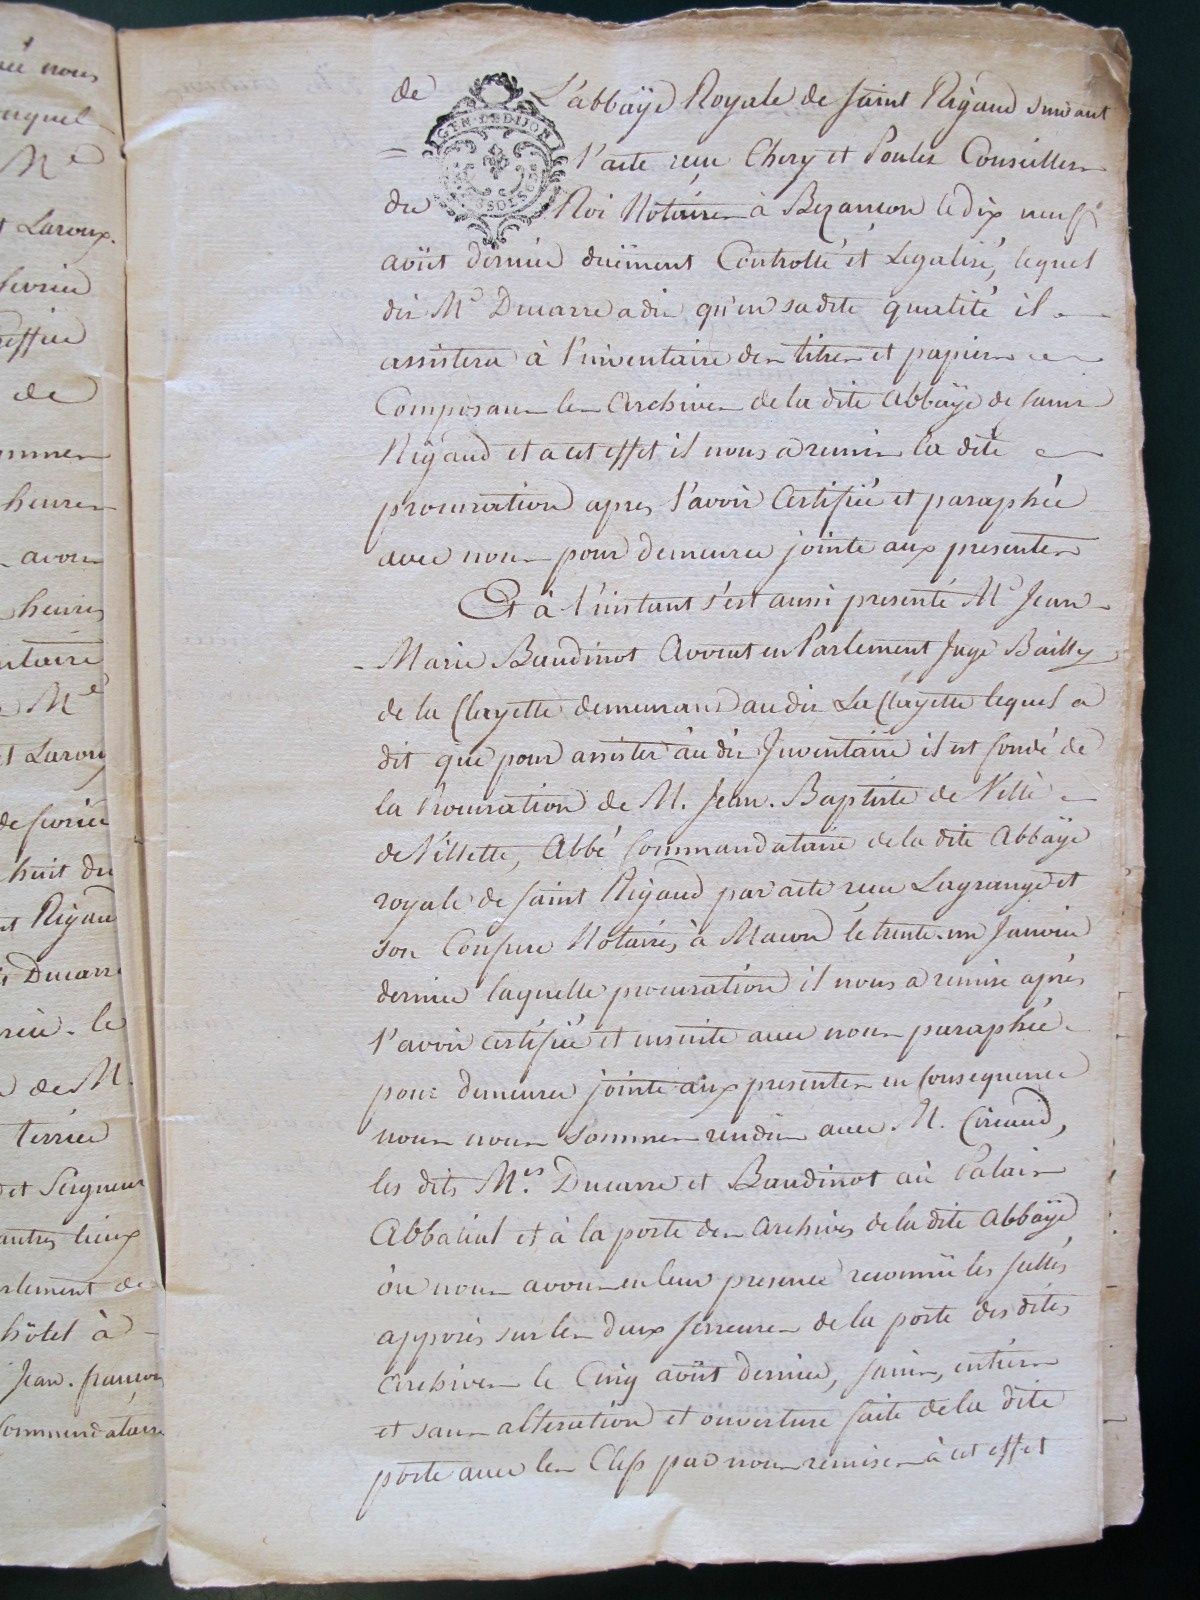 née nous
Me
t Laroux.
fevrier
de
heures
avons
heures
Me
t Laroux
de fevrier
huit du
nt Rigaud
Ducarre
le
de M.
terrier
et Seigneur
autres lieux
rlement de
hôtel à
Jean. françois
Commendataire
de L'abbaÿe Royale de saint Rigaud suivant
GEN. DE DIJON
l'acte recu Chery et Poulet Conseillers
du Roi Notaires à Bezancon le dix neuf
aoüst dernier düement Controllé et Legalisé, lequel
dit Me Ducarre a dit qu'en sa dite qualité il
assistera à l'inventaire des titres et papiers
Composant les archives de la dite abbaÿe de saint
Rigaud et a cet effet il nous a remis la dite
procuration apres l'avoir Certifiée et paraphée
avec nous pour demeurer jointe aux presentes
Et à l'instant s'est aussi presenté Me Jean
Marie Baudinot Avocat en Parlement Juge Bailly
de la Clayette demeurant au dit La Clayette lequel a
dit que pour assister au dit Inventaire il est fondé de
la Procuration de M. Jean. Baptiste de Ville
de Villette, Abbé Commandataire de la dite Abbaÿe
royale de saint Rigaud par acte recu Lagrange et
son Confrere Notaires à Macon le trente un Janvier
dernier laquelle procuration il nous a remise après
l'avoir certifiée et ensuite avec nous paraphée
pour demeurer jointe aux presentes en Consequence
nous nous sommes rendus avec M. Circaud,
les dits Mes. Ducarre et Baudinot au Palais
Abbatial et à la porte des archives de la dite abbaÿe
où nous avons en leur presence reconnü les scellés
apposés sur les deux serrures de la porte des dites
archives le Cinq aoüst dernier, sains, entiers
et sans alteration et ouverture faite de la dite
porte avec les Clefs par nous remises à cet effet